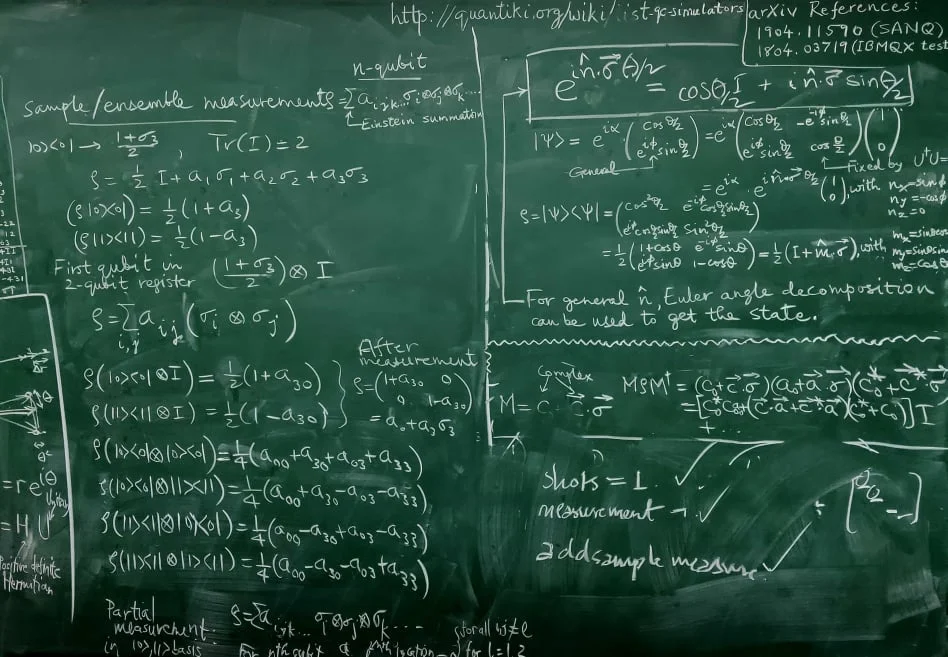 http://quantiki.org/wiki/list-qc-simulators
arXiv References:
1904.11590 (SANQ)
1804.03719 (IBMQX test
n-qubit
Sample/ensemble measurements
ρ=∑a_{ijk...} σ_i⊗σ_j⊗σ_k....
Einstein summation
|0><0| → (1+σ₃)/2 , Tr(I)=2
ρ = ½ I + a₁σ₁ + a₂σ₂ + a₃σ₃
(ρ|0><0|) = ½(1+a₃)
(ρ|1><1|) = ½(1-a₃)
First qubit in
2-qubit register ((1+σ₃)/2) ⊗ I
ρ = ∑_{i,j} a_{ij} (σ_i ⊗ σ_j)
ρ(|0><0|⊗I) = ½(1+a₃₀)
ρ(|1><1|⊗I) = ½(1-a₃₀)
After
measurement
ρ = (1+a₃₀ 0
0 1-a₃₀)
= a₀+a₃σ₃
ρ(|0><0|⊗|0><0|) = ¼(a₀₀+a₃₀+a₀₃+a₃₃)
ρ(|0><0|⊗|1><1|) = ¼(a₀₀+a₃₀-a₀₃-a₃₃)
ρ(|1><1|⊗|0><0|) = ¼(a₀₀-a₃₀+a₀₃-a₃₃)
ρ(|1><1|⊗|1><1|) = ¼(a₀₀-a₃₀-a₀₃+a₃₃)
Partial
measurement:
in |0>,|1> basis
ρ=∑a_{ijk...} σ_i⊗σ_j⊗σ_k....
for l=1,2
=re^{iθ}
Unitary
=H U
Positive definite
Hermitian
e^{i n̂·σ⃗ θ/2} = cosθ/2 I + i n̂·σ⃗ sinθ/2
|Ψ> = e^{iα} (cosθ/2
e^{iφ} sinθ/2) = e^{iα} (cosθ/2 -e^{-iφ} sinθ/2
e^{iφ} sinθ/2 cosθ/2) (1
0)
General
Fixed by U†U=
= e^{iα} e^{i n̂·σ⃗ θ/2} (1
0), with n_x=sinφ
n_y=-cosφ
n_z=0
ρ=|Ψ><Ψ| = (cos²θ/2 e^{-iφ}cosθ/2 sinθ/2
e^{iφ}cosθ/2 sinθ/2 sin²θ/2)
= ½(1+cosθ e^{-iφ}sinθ
e^{iφ}sinθ 1-cosθ) = ½(I+m̂·σ⃗), with
m_z=cosθ
For general n̂, Euler angle decomposition
can be used to get the state.
Complex
MρM† = (c₀+c⃗·σ⃗)(a₀+a⃗·σ⃗)(c₀*+c⃗*·σ⃗
shots = 1
measurement
add sample measure